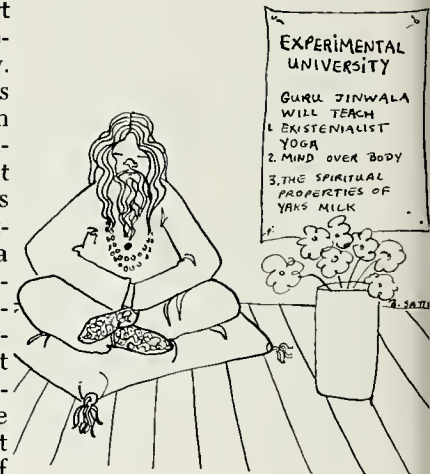 EXPERIMENTAL
UNIVERSITY
GURU JINWALA
WILL TEACH
1. EXISTENIALIST
YOGA
2. MIND OVER BODY
3. THE SPIRITUAL
PROPERTIES OF
YAKS MILK